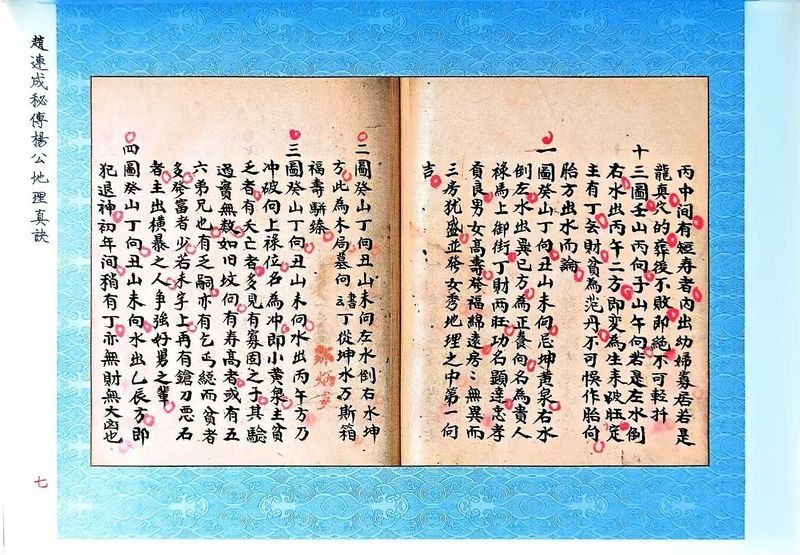 丙中间有短寿者內出幼婦寡居若是
龍真久的葬後不敗即絶不可輕扦
十三圖壬山丙向子山午向若是左水倒
右水出丙午二方即变為生来破旺定
主有丁去財貧為范丹不可悞作胎向
胎方出水而論
一圖癸山丁向丑山未向忌坤黄泉右水
倒左水出巽巳方為正養向名為貴人
祿馬上御街丁財两旺功名顯達忠孝
貟良男女高壽發福綿遠房房無異而
三房犹盛並發女秀地理之中第一向
吉
二圖癸山丁向丑山未向左水倒右水坤
方此為木局墓向書云丁從坤水万斯箱
福壽駢臻
三圖癸山丁向丑山未向水出丙午方乃
冲破向上祿位名為冲即小黄泉主貧
乏者有夭亡者多見有寡固之子其驗
過實無救如旧坟向有寿高者或有五
六弟兄也有乏嗣亦有乞丐総而貧者
多發富者少若未字上再有鎗刀悪石
者主出横暴之人争強好男之輩
四圖癸山丁向丑山未向水出乙辰方即
犯退神初年间稍有丁亦無財無大凶也
趙連成秘傳楊公地理真訣
七